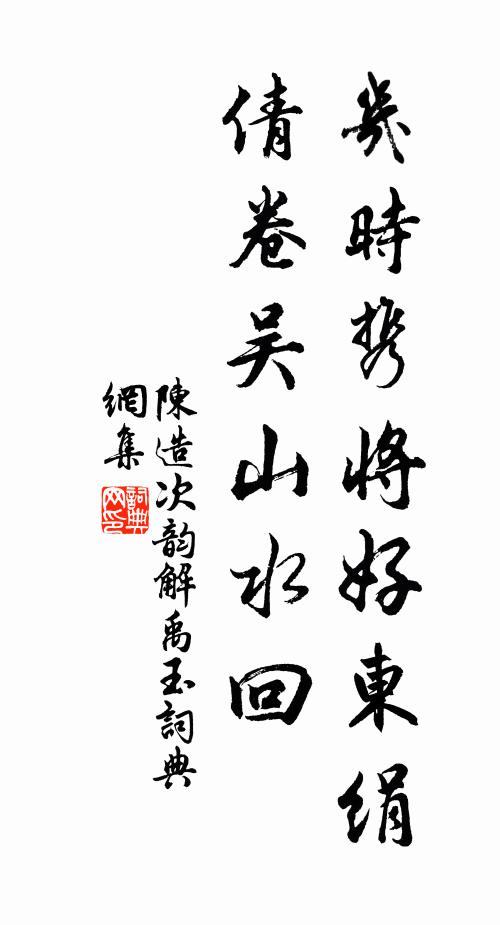 幾時攜將好東絹
倩卷吴山水回
陳造次韵解禹玉詞典
網集
詞典
网印